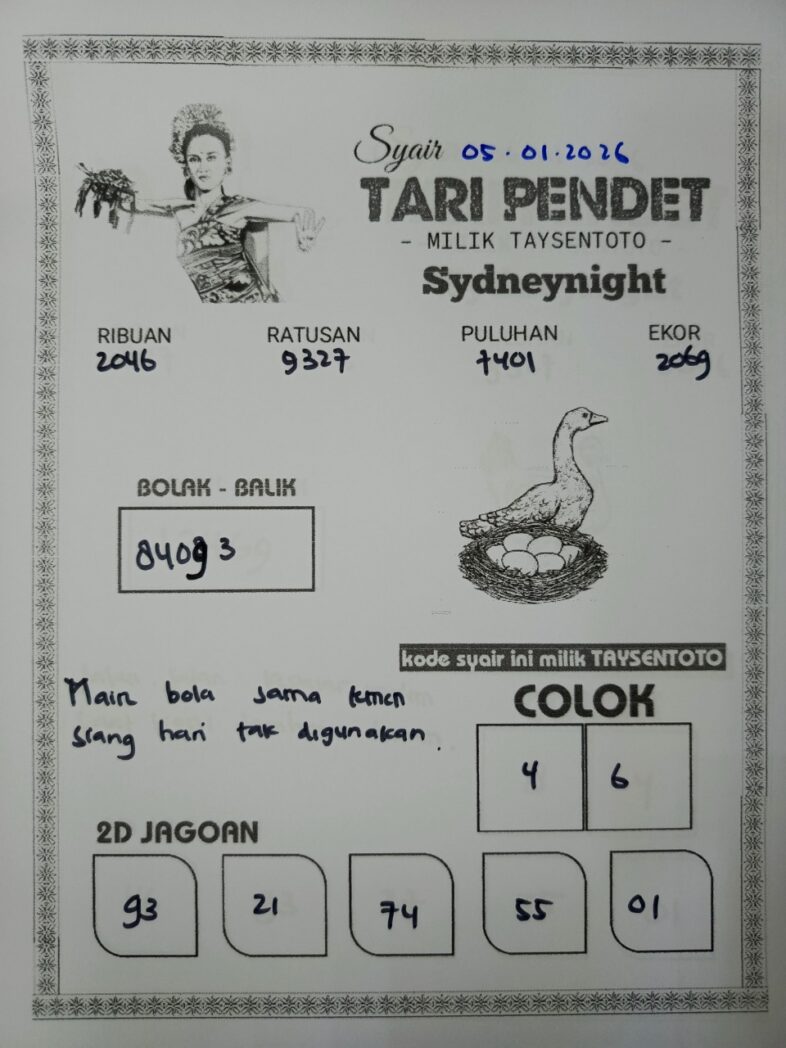 Syair 05.01.2026
TARI PENDET
- MILIK TAYSENTOTO -
Sydneynight
RIBUAN RATUSAN PULUHAN EKOR
2046 9327 7401 2069
BOLAK - BALIK
84093
kode syair ini milik TAYSENTOTO
Main bola sama temen
siang hari tak digunakan.
COLOK
4 6
2D JAGOAN
93 21 74 55 01